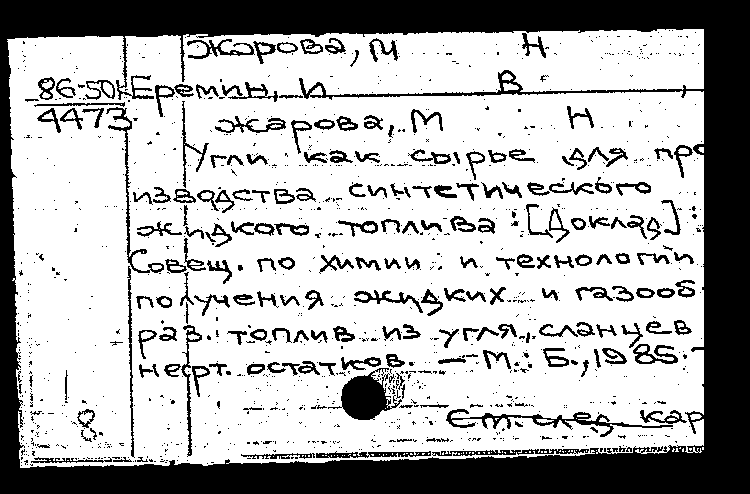 Жарова, М Н
86-50к Еремин, И В ,
4473 Жарова, М Н
Угли как сырье для про
изводства синтетического
жидкого топлива : [Доклад] :
Совещ. по химии и технологии
получения жидких и газооб-
раз. топлив из угля, сланцев
нефт. остатков. — М. : Б., 1985. -
8. См. след. кар